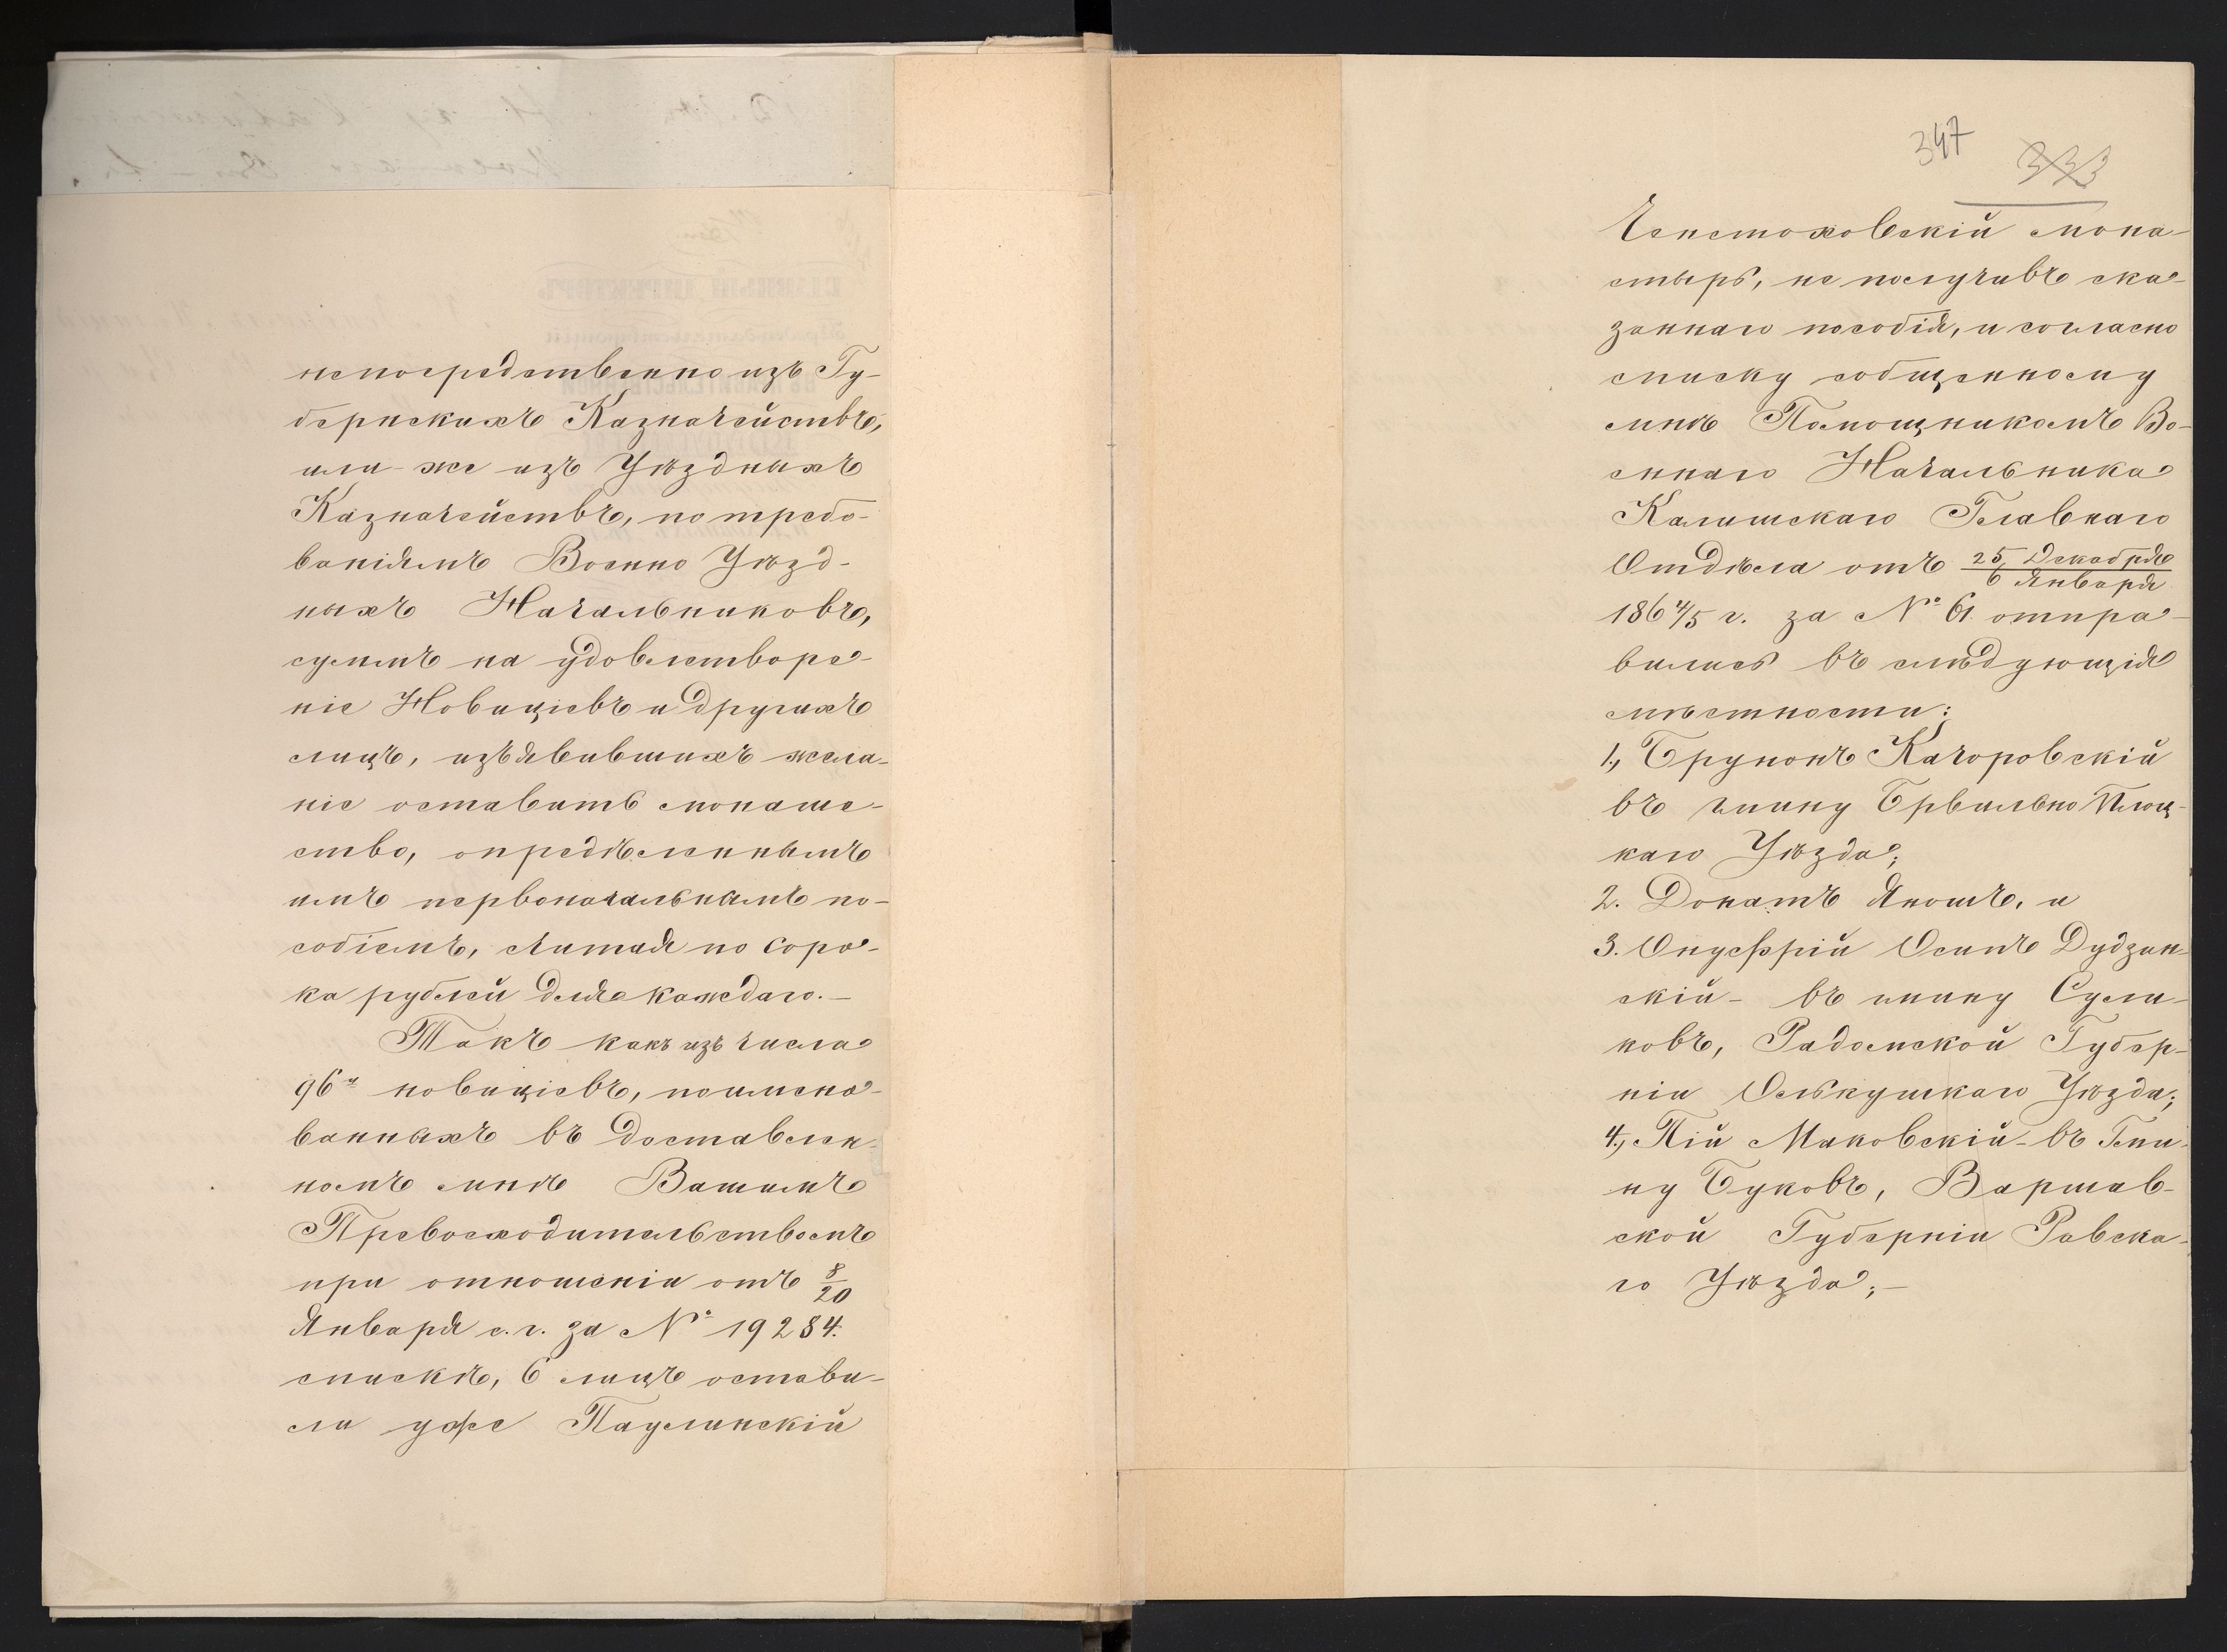 непосредственно изъ Гу-
бернскихъ Казначействъ,
или же изъ Уѣздныхъ
Казначействъ, по требо-
ваніямъ Военно Уѣзд-
ныхъ Начальниковъ,
суммъ на удовлетворе-
ніе Новиціевъ и другихъ
лицъ, изъявившихъ жела-
ніе оставить монаше-
ство, опредѣленнымъ
имъ первоначальнымъ по-
собіемъ, считая по соро-
ка рублей для каждаго.-
Такъ какъ изъ числа
96и новиціевъ, поимено-
ванныхъ въ доставлен-
номъ мнѣ Вашимъ
Превосходительствомъ
при отношеніи отъ 8/20
Января с. г. за № 19284.
спискѣ, 6 лицъ остави-
ли уже Паулинскій
347 333
Ченстоховскій мона-
стырь, не получивъ ска-
заннаго пособія, и согласно
списку сообщенному
мнѣ Помощникомъ Во-
еннаго Начальника
Калишскаго Главнаго
Отдѣла отъ 25 Декабря / 6 Января
1864/5 г. за № 61 отпра-
вились въ слѣдующія
мѣстности:
1, Брунонъ Качоровскій
въ гмину Брвильно Плоц-
каго Уѣзда;
2. Донатъ Яношъ, и
3. Онуфрій Осипъ Дудзин-
скій - въ гмину Сули-
ковъ, Радомской Губер-
ніи Олькушкаго Уѣзда;
4, Пій Маковскій - въ Гми-
ну Буковъ, Варшав-
ской Губерніи Равска-
го Уѣзда;-